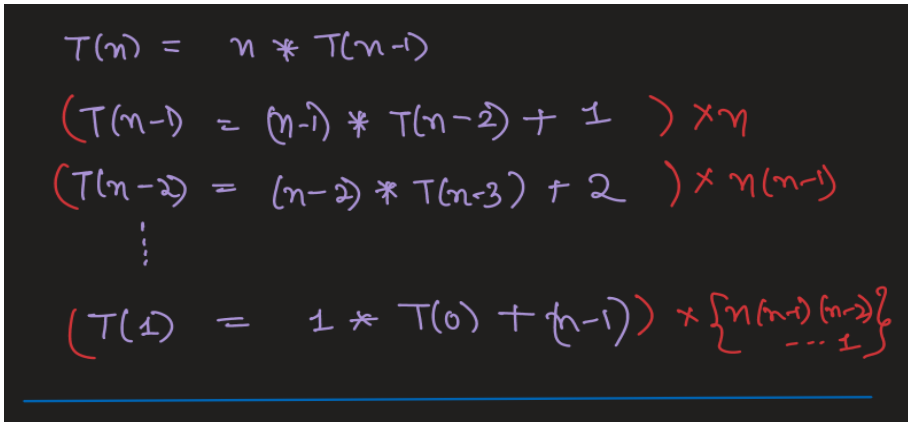 T(n) = n * T(n-1)
(T(n-1) = (n-1) * T(n-2) + 1 ) × n
(T(n-2) = (n-2) * T(n-3) + 2 ) × n(n-1)
⋮
(T(1) = 1 * T(0) + (n-1)) × {n(n-1)(n-2)
--- 1}